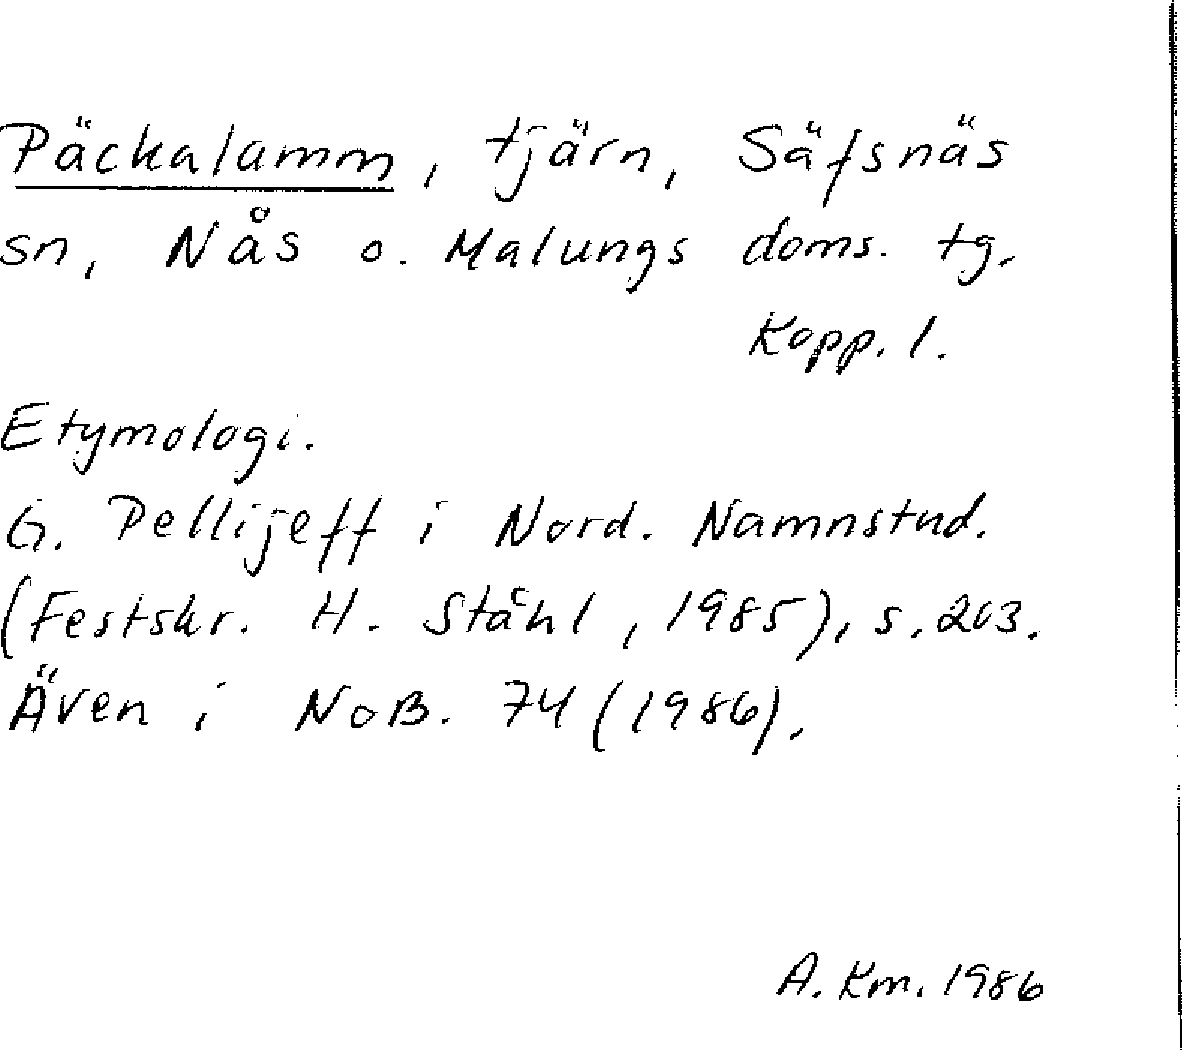 Päckalamm, tjärn, Säfsnäs
sn, Nås o. Malungs doms. tg.
Kopp. l.
Etymologi.
G. Pellijeff i Nord. Namnstud.
(Festskr. H. Ståhl, 1985), s. 203.
Även i NoB. 74 (1986).
A. Km. 1986